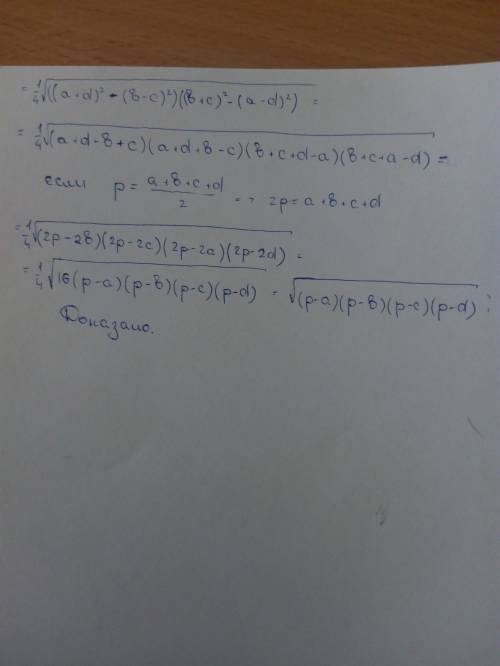 = 1/4 √((a+d)² - (в-c)²)((в+c)² - (a-d)²) =
= 1/4 √(a+d-в+c)(a+d+в-c)(в+c+d-a)(в+c+a-d) =
если p = (a+в+c+d)/2 => 2p = a+в+c+d
= 1/4 √(2p-2в)(2p-2c)(2p-2a)(2p-2d) =
= 1/4 √16(p-a)(p-в)(p-c)(p-d) = √(p-a)(p-в)(p-c)(p-d)
Доказано.